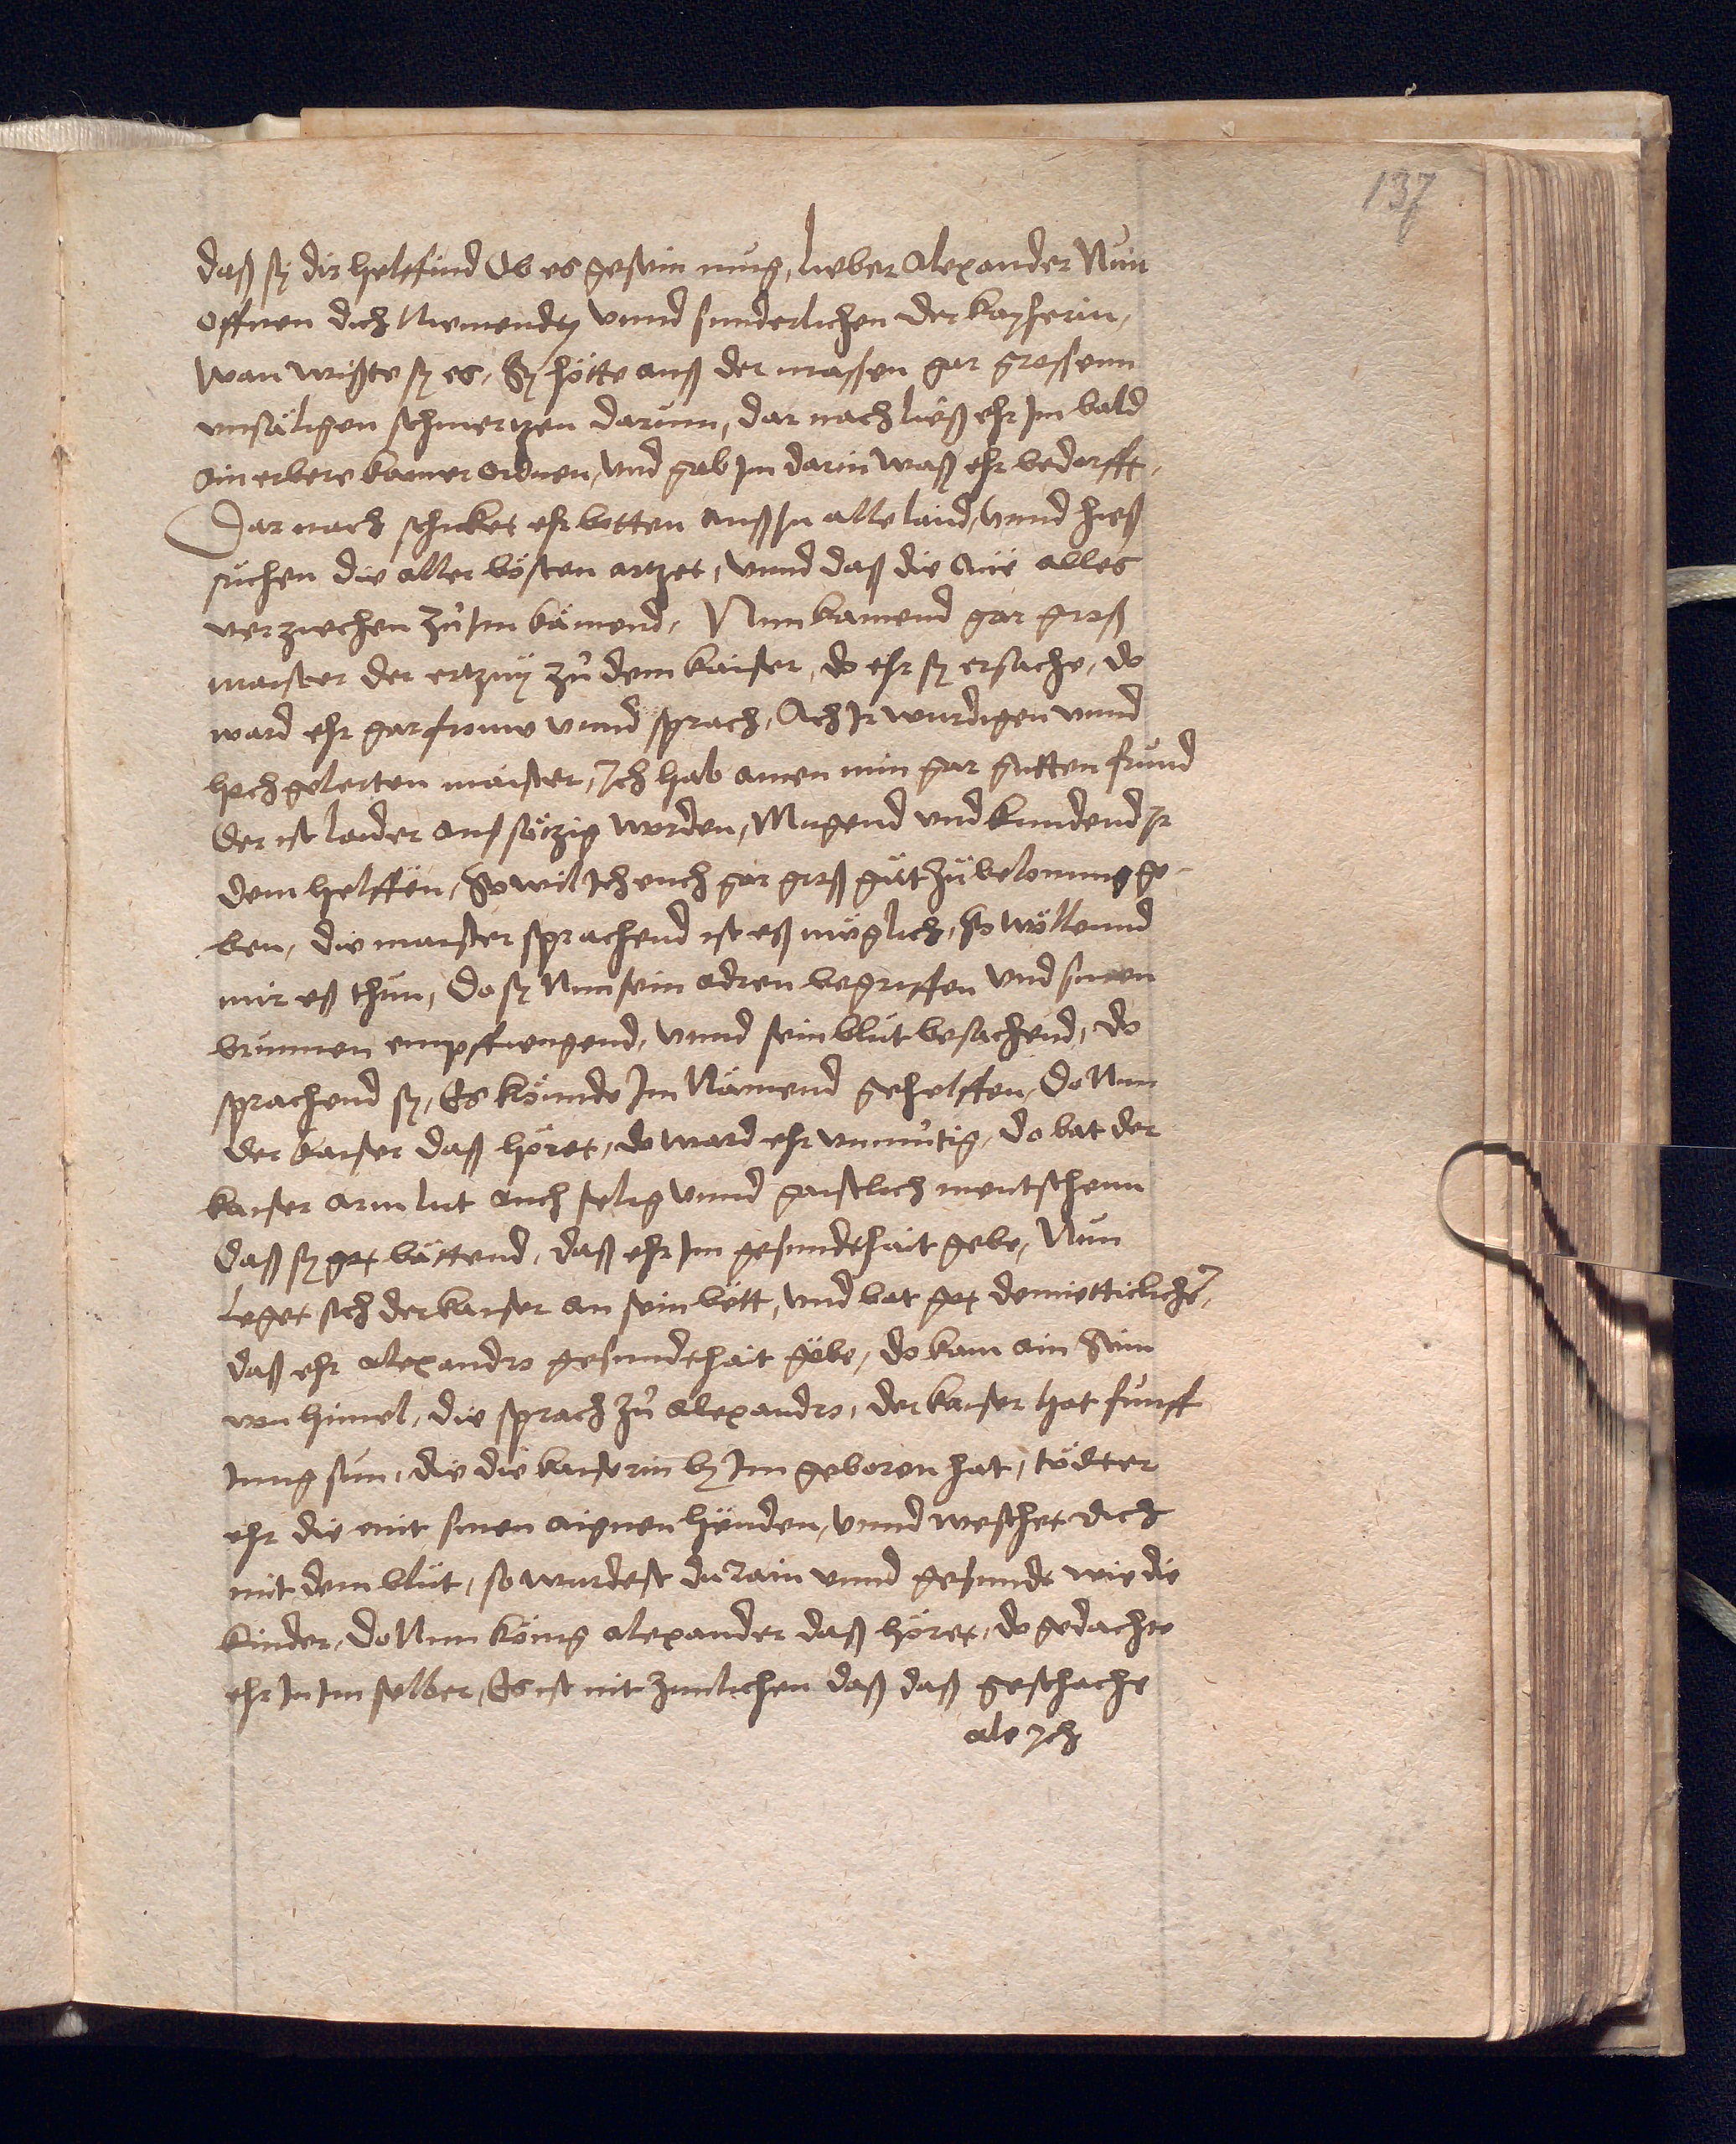 137
daß sy dir helffind Ob es gesein mug, lieber Alexander Nun
offnen dich Niemendtz vnnd sunderlichen der kayserin,
wan wißte sy es, Sy hötte auß der massen gar grossenn
vnsäligen schmertzen darumb, dar nach ließ ehr Im bald
ain erbere kamer ordnen, vnd gab Im darin waß ehr bedorfft,
Dar nach schicket ehr botten auß In alle land, vnnd hieß
suchen die aller bösten artzet, vnnd daß die one alles
verziechen zů Im kämend, Nun kamend gar groß
maister der ertzny zů dem kaiser, do ehr sy ersache, do
ward ehr gar frouw vnnd sprach, Ach Ir wurdigen vnnd
hochgelerten maister, Ich hab ainen min gar gutten frund
der ist laider aussätzig worden, Mugend vnd kundend Ir
dem helffen, So wil Ich euch gar groß gůt zů belonung ge-
ben, die maister sprachend ist eß muglich, so wöllennd
mir eß thun, Do sy Nun sein adren begriffen vnd sinen
brunnen empffiengend, vnnd sein blut besachend, do
sprachend sy, Es könnde Im Nämend gehelffen, Do Nun
der kaiser daß höret, do ward ehr vnmůtig, do bat der
kaiser arm lut auch selig vnnd gaistlich mentschenn
daß sy got bättend, daß ehr Im gesundthait gebe, Nun
leget sich der kaiser an sein bett, vnd bat got demietticliche,
daß ehr alexandro gesundthait gäbe, do kam ain stim
von himel, die sprach zů alexandro, der kaiser hat funff
Jung sun, die die kaiserin by Im geboren hat, tödtet
ehr die mit sinen aignen henden, vnnd weschet dich
mit dem blut, so wurdest du rain vnnd gesunde wie die
kinder, Do Nun könig alexander daß höret, do gedachte
ehr In Im selber, Es ist nit zimlichen daß daß geschache
ale Ich